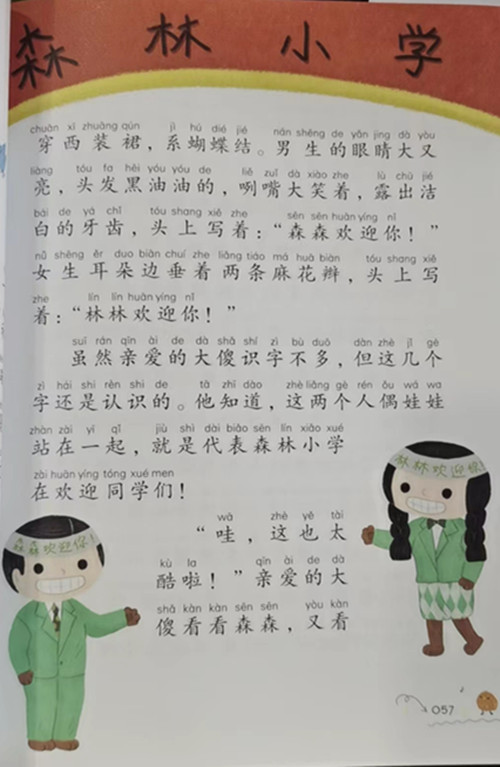 森林小学
chuān xī zhuāng qún jì hú dié jié nán shēng de yǎn jing dà yòu
穿西装裙，系蝴蝶结。男生的眼睛大又
liàng tóu fa hēi yóu yóu de liě zuǐ dà xiào zhe lù chū jié
亮，头发黑油油的，咧嘴大笑着，露出洁
bái de yá chǐ tóu shang xiě zhe sēn sēn huān yíng nǐ
白的牙齿，头上写着：“森森欢迎你！”
nǚ shēng ěr duo biān chuí zhe liǎng tiáo má huā biàn tóu shang xiě
女生耳朵边垂着两条麻花辫，头上写
zhe lín lín huān yíng nǐ
着：“林林欢迎你！”
suī rán qīn ài de dà shǎ shí zì bù duō dàn zhè jǐ gè
虽然亲爱的大傻识字不多，但这几个
zì hái shi rèn shi de tā zhī dào zhè liǎng gè rén ǒu wá wa
字还是认识的。他知道，这两个人偶娃娃
zhàn zài yì qǐ jiù shì dài biǎo sēn lín xiǎo xué
站在一起，就是代表森林小学
zài huān yíng tóng xué men
在欢迎同学们！
wā zhè yě tài
“哇，这也太
kù la qīn ài de dà
酷啦！”亲爱的大
shǎ kàn kàn sēn sēn yòu kàn
傻看看森森，又看
林林欢迎你！
森森欢迎你！
057